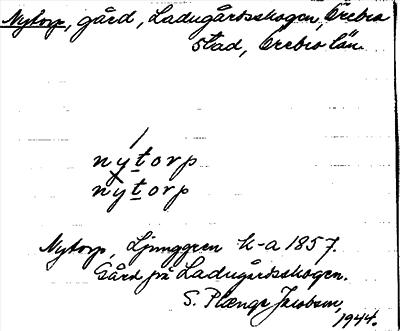 Nytorp, gård, Ladugårdsskogen, Örebro
stad, Örebro län.
nytorp
nytorp
Nytorp, Ljunggren k-a 1857.
Gård på Ladugårdsskogen.
S. Plænge Jacobson,
1944.